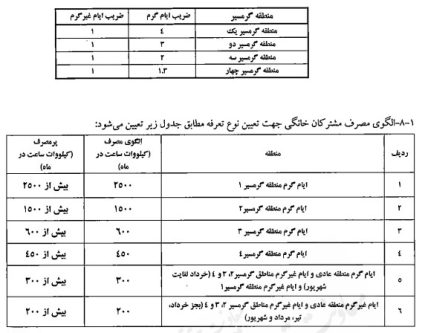 منطقه گرمسیر ضریب ایام گرم ضریب ایام غیرگرم
منطقه گرمسیر یک ۴ ۱
منطقه گرمسیر دو ۳ ۱
منطقه گرمسیر سه ۲ ۱
منطقه گرمسیر چهار ۱.۳ ۱
۱-۸-الگوی مصرف مشترکان خانگی جهت تعیین نوع تعرفه مطابق جدول زیر تعیین می‌شود:
ردیف منطقه الگوی مصرف (کیلووات ساعت در ماه) پرمصرف (کیلووات ساعت در ماه)
۱ ایام گرم منطقه گرمسیر ۱ ۲۵۰۰ بیش از ۲۵۰۰
۲ ایام گرم منطقه گرمسیر۲ ۱۵۰۰ بیش از ۱۵۰۰
۳ ایام گرم منطقه گرمسیر ۳ ۶۰۰ بیش از ۶۰۰
۴ ایام گرم منطقه گرمسیر۴ ۴۵۰ بیش از ۴۵۰
۵ ایام گرم منطقه عادی و ایام غیرگرم مناطق گرمسیر ۲، ۳ و ۴ (خرداد لغایت شهریور) و ایام غیرگرم منطقه گرمسیر۱ ۳۰۰ بیش از ۳۰۰
۶ ایام غیرگرم منطقه عادی و ایام غیرگرم مناطق گرمسیر ۲، ۳ و ۴ (بجز خرداد، تیر، مرداد و شهریور) ۲۰۰ بیش از ۲۰۰